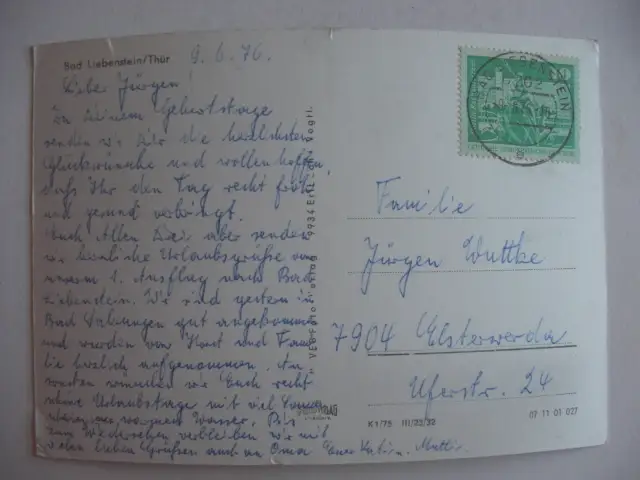 Bad Liebenstein/Thür
9.6.76.
Lieber Jürgen!
Zu Deinem Geburtstage
senden wir Dir die herzlichsten
Glückwünsche und wollen hoffen,
daß Ihr den Tag recht froh
und gesund verbringt.
Euch Allen aber senden
wir herzliche Urlaubsgrüße von
unserm 1. Ausflug nach Bad
Liebenstein. Wir sind gestern in
Bad Salzungen gut angekommen
und wurden von Horst und Fami-
lie herzlich aufgenommen. An-
sonsten wünschen wir Euch recht
schöne Urlaubstage mit viel Sonne
warmem Wasser. Bis
zum Wiedersehen verbleiben wir mit
lieben Grüßen auch an Oma Eure Mutti.
Familie
Jürgen Wuttke
7904 Elsterwerda
Uferstr. 24
K1/75 III/22/32
07 11 01 027